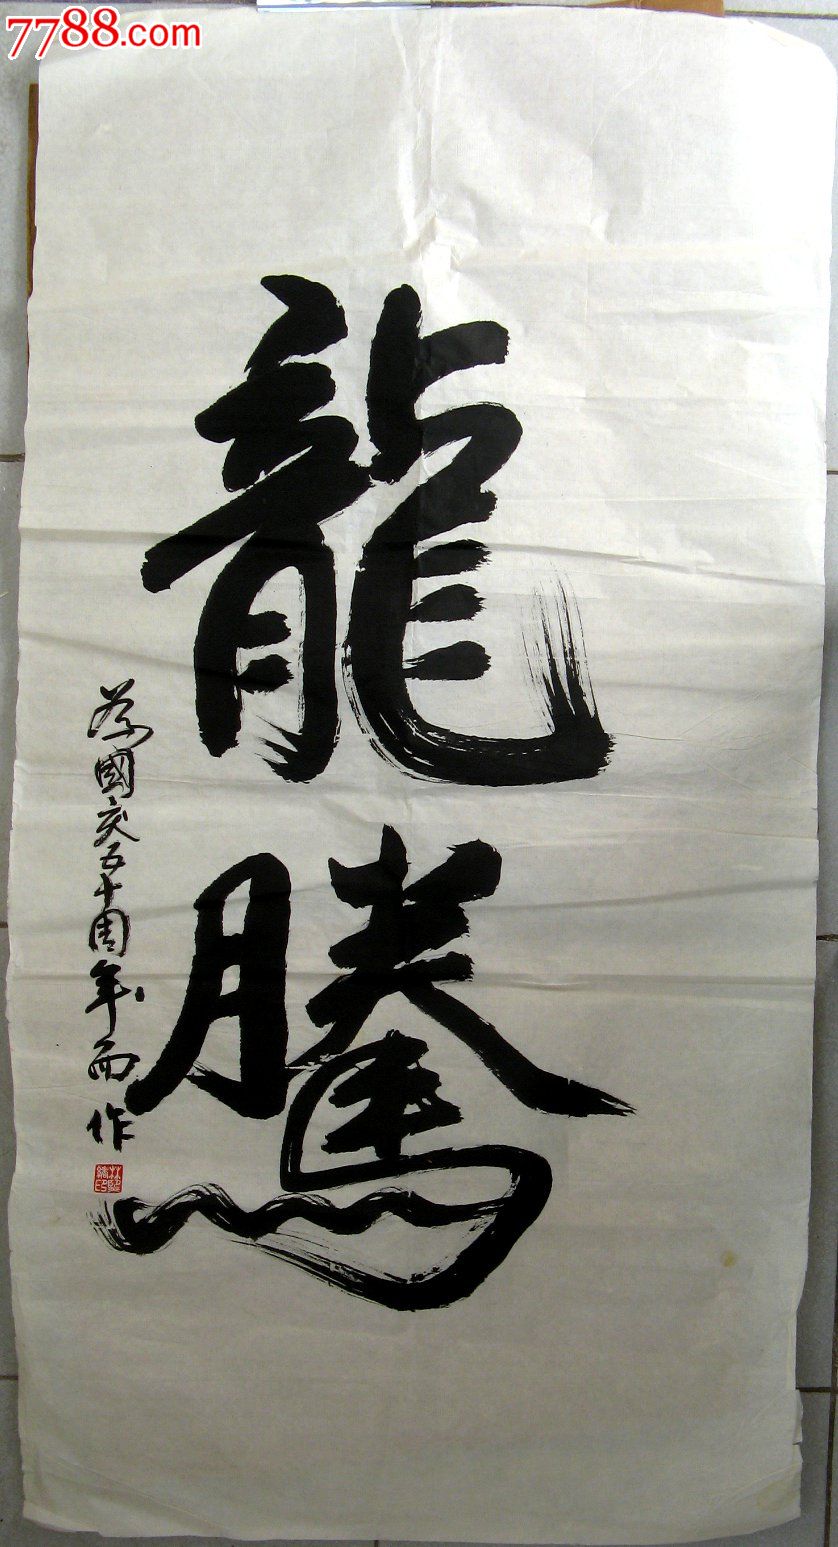 7788.com
龍騰
为國庆五十周年而作